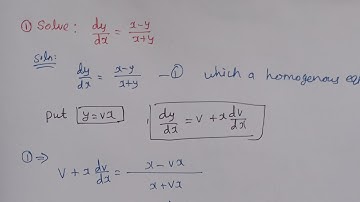 ① Solve: dy/dx = x-y/x+y
Soln: dy/dx = x-y/x+y —① which a homogenous
Put y=vx, dy/dx = v + x dv/dx
① ⇒
v + x dv/dx = x - vx/x + vx